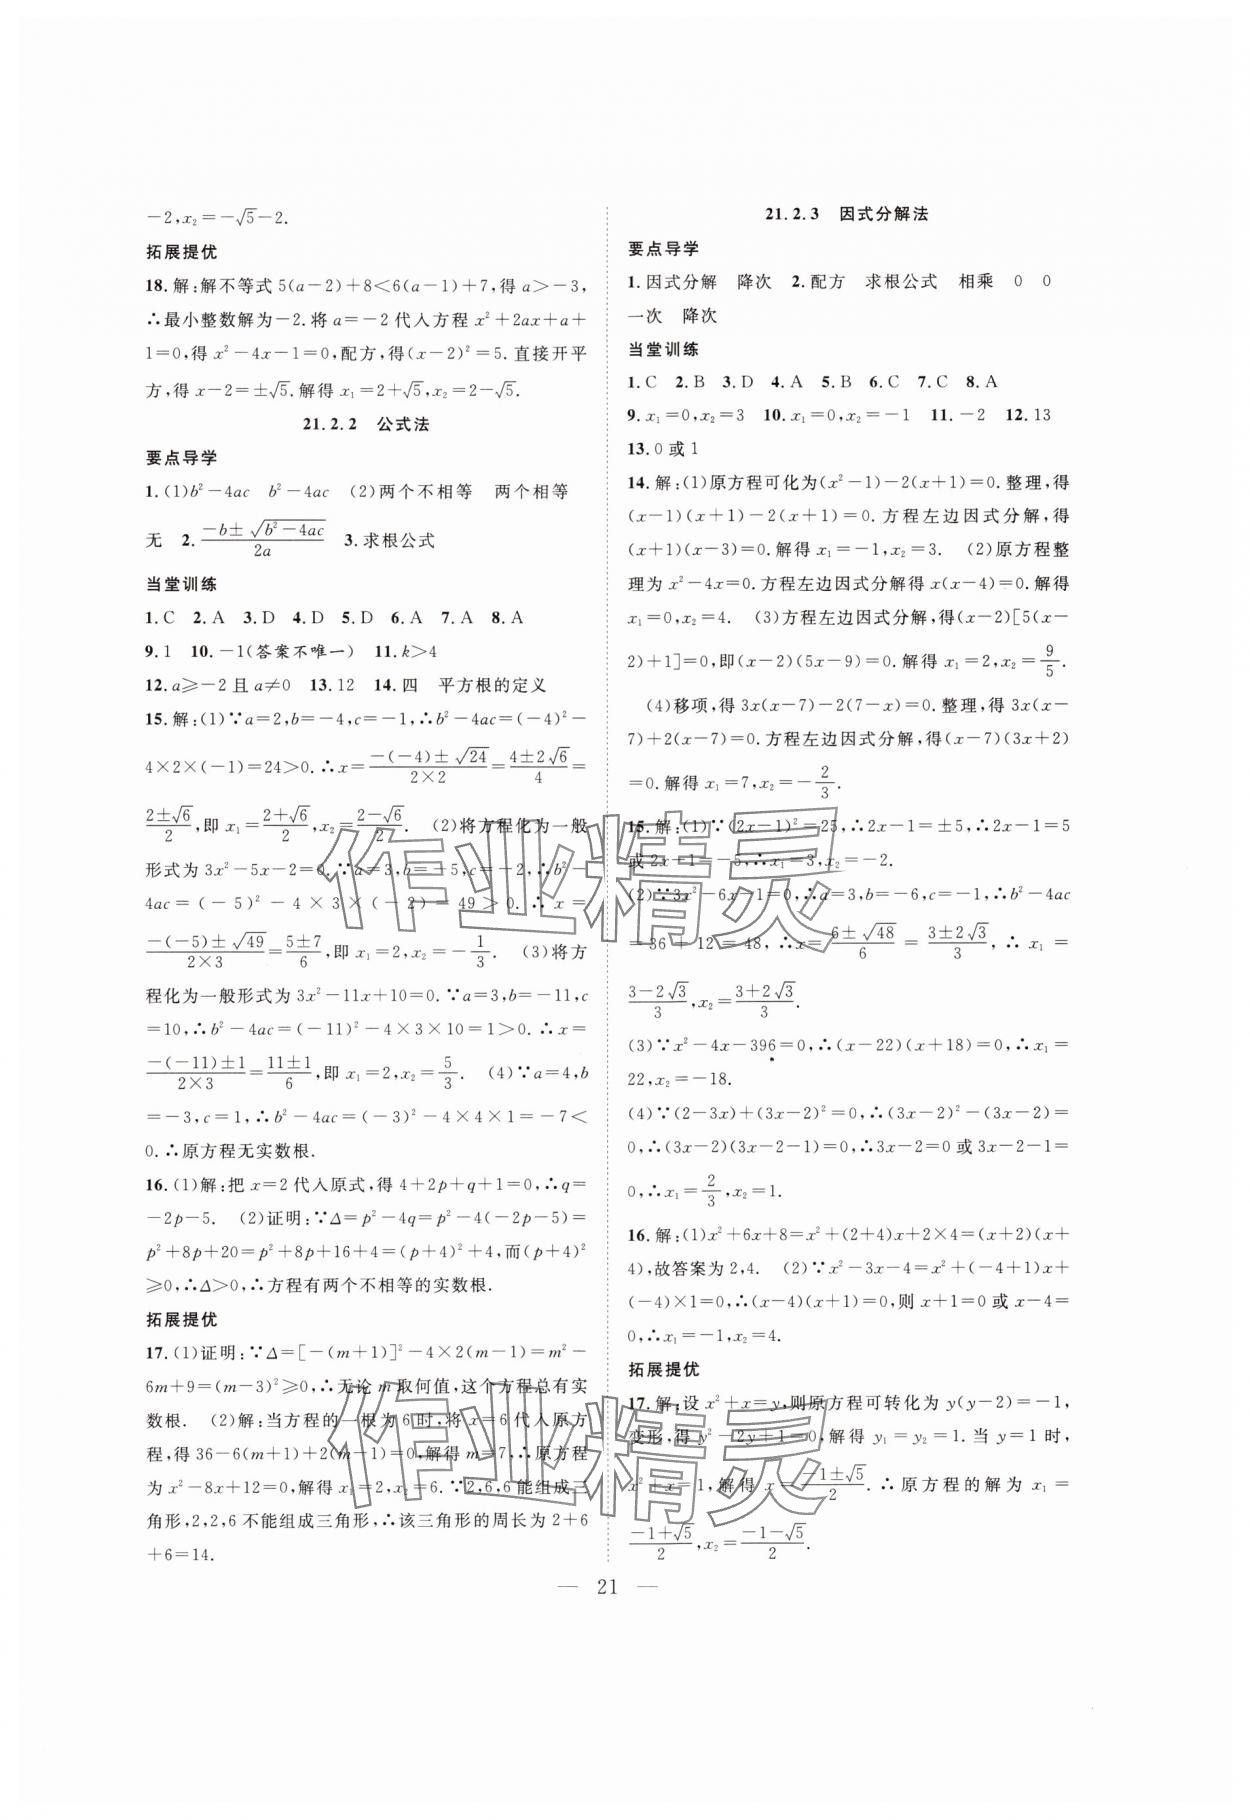 -2,x₂=-√5-2.
拓展提优
18.解:解不等式 5(a-2)+8<6(a-1)+7,得 a>-3,
∴最小整数解为-2.将 a=-2代入方程 x²+2ax+a+
1=0,得 x²-4x-1=0,配方,得(x-2)²=5.直接开平
方,得 x-2=±√5.解得 x₁=2+√5,x₂=2-√5.
21.2.2 公式法
要点导学
1.(1)b²-4ac b²-4ac (2)两个不相等 两个相等
无 2.(-b±√(b²-4ac))/2a 3.求根公式
当堂训练
1.C 2.A 3.D 4.D 5.D 6.A 7.A 8.A
9.1 10.-1(答案不唯一) 11.k>4
12.a≥-2且a≠0 13.12 14.四 平方根的定义
15.解:(1)∵a=2,b=-4,c=-1,∴b²-4ac=(-4)²-
4×2×(-1)=24>0.∴x=(-(-4)±√24)/(2×2)=(4±2√6)/4=
(2±√6)/2,即 x₁=(2+√6)/2,x₂=(2-√6)/2. (2)将方程化为一般
形式为 3x²-5x-2=0.∵a=3,b=-5,c=-2,∴b²-
4ac=(-5)²-4×3×(-2)=49>0.∴x=
(-(-5)±√49)/(2×3)=(5±7)/6,即 x₁=2,x₂=-1/3. (3)将方
程化为一般形式为 3x²-11x+10=0.∵a=3,b=-11,c
=10,∴b²-4ac=(-11)²-4×3×10=1>0.∴x=
(-(-11)±1)/(2×3)=(11±1)/6,即 x₁=2,x₂=5/3. (4)∵a=4,b
=-3,c=1,∴b²-4ac=(-3)²-4×4×1=-7<
0.∴原方程无实数根.
16.(1)解:把 x=2代入原式,得 4+2p+q+1=0,∴q=
-2p-5. (2)证明:∵Δ=p²-4q=p²-4(-2p-5)=
p²+8p+20=p²+8p+16+4=(p+4)²+4,而(p+4)²
≥0,∴Δ>0,∴方程有两个不相等的实数根.
拓展提优
17.(1)证明:∵Δ=[-(m+1)]²-4×2(m-1)=m²-
6m+9=(m-3)²≥0,∴无论 m 取何值,这个方程总有实
数根. (2)解:当方程的一根为 6 时,将 x=6 代入原方
程,得 36-6(m+1)+2(m-1)=0,解得 m=7,∴原方程
为 x²-8x+12=0,解得 x₁=2,x₂=6.∵2,6,6能组成三
角形,2,2,6不能组成三角形,∴该三角形的周长为 2+6
+6=14.
21.2.3 因式分解法
要点导学
1.因式分解 降次 2.配方 求根公式 相乘 0 0
一次 降次
当堂训练
1.C 2.B 3.D 4.A 5.B 6.C 7.C 8.A
9.x₁=0,x₂=3 10.x₁=0,x₂=-1 11.-2 12.13
13.0或1
14.解:(1)原方程可化为(x²-1)-2(x+1)=0.整理,得
(x-1)(x+1)-2(x+1)=0.方程左边因式分解,得
(x+1)(x-3)=0.解得 x₁=-1,x₂=3. (2)原方程整
理为 x²-4x=0.方程左边因式分解得 x(x-4)=0.解得
x₁=0,x₂=4. (3)方程左边因式分解,得(x-2)[5(x-
2)+1]=0,即(x-2)(5x-9)=0.解得 x₁=2,x₂=9/5.
(4)移项,得 3x(x-7)-2(7-x)=0.整理,得 3x(x-
7)+2(x-7)=0.方程左边因式分解,得(x-7)(3x+2)
=0.解得 x₁=7,x₂=-2/3.
15.解:(1)∵(2x-1)²=25,∴2x-1=±5,∴2x-1=5
或 2x-1=-5,∴x₁=3,x₂=-2.
(2)∵3x²-6x-1=0,∴a=3,b=-6,c=-1,∴b²-4ac
=36+12=48,∴x=(6±√48)/6=(3±2√3)/3,∴x₁=
(3-2√3)/3,x₂=(3+2√3)/3.
(3)∵x²-4x-396=0,∴(x-22)(x+18)=0,∴x₁=
22,x₂=-18.
(4)∵(2-3x)+(3x-2)²=0,∴(3x-2)²-(3x-2)=
0,∴(3x-2)(3x-2-1)=0,∴3x-2=0或3x-2-1=
0,∴x₁=2/3,x₂=1.
16.解:(1)x²+6x+8=x²+(2+4)x+2×4=(x+2)(x+
4),故答案为2,4. (2)∵x²-3x-4=x²+(-4+1)x+
(-4)×1=0,∴(x-4)(x+1)=0,则 x+1=0或 x-4=
0,∴x₁=-1,x₂=4.
拓展提优
17.解:设 x²+x=y,则原方程可转化为 y(y-2)=-1,
变形,得 y²-2y+1=0,解得 y₁=y₂=1.当 y=1 时,
x²+x=1,解得 x=(-1±√5)/2.∴原方程的解为 x₁=
(-1+√5)/2,x₂=(-1-√5)/2.
— 21 —
作业精灵
作业精灵